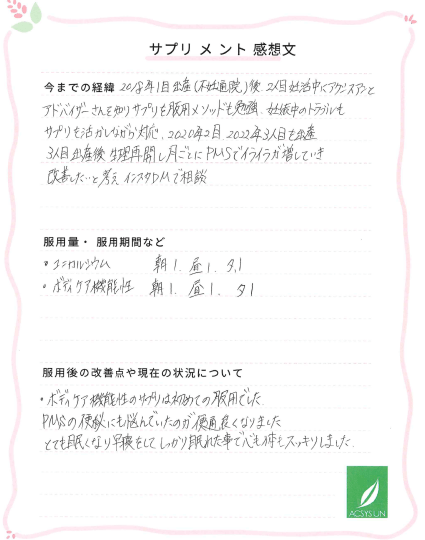 サプリメント感想文
今までの経緯 2018年1目出産(不妊通院)後、2人目妊活中にアクシスアンと
アドバイザーさんを知りサプリを服用メソッドも勉強、妊娠中のトラブルも
サプリを活かしながら対応、2020年2目、2022年3人目を出産
3人目出産後 生理再開し月ごとにPMSでイライラが増していき
改善したい…と考え インスタDMで相談
服用量・服用期間など
・ユニカルシウム 朝1. 昼1. 夕1
・ボディケア機能性 朝1. 昼1. 夕1
服用後の改善点や現在の状況について
・ボディケア機能性のサプリは初めての服用でした
PMSの便秘にも悩んでいたのが便通良くなりました
とても眠くなり早寝をしてしっかり眠れた事で心も体もスッキリしました
ACSYSUN